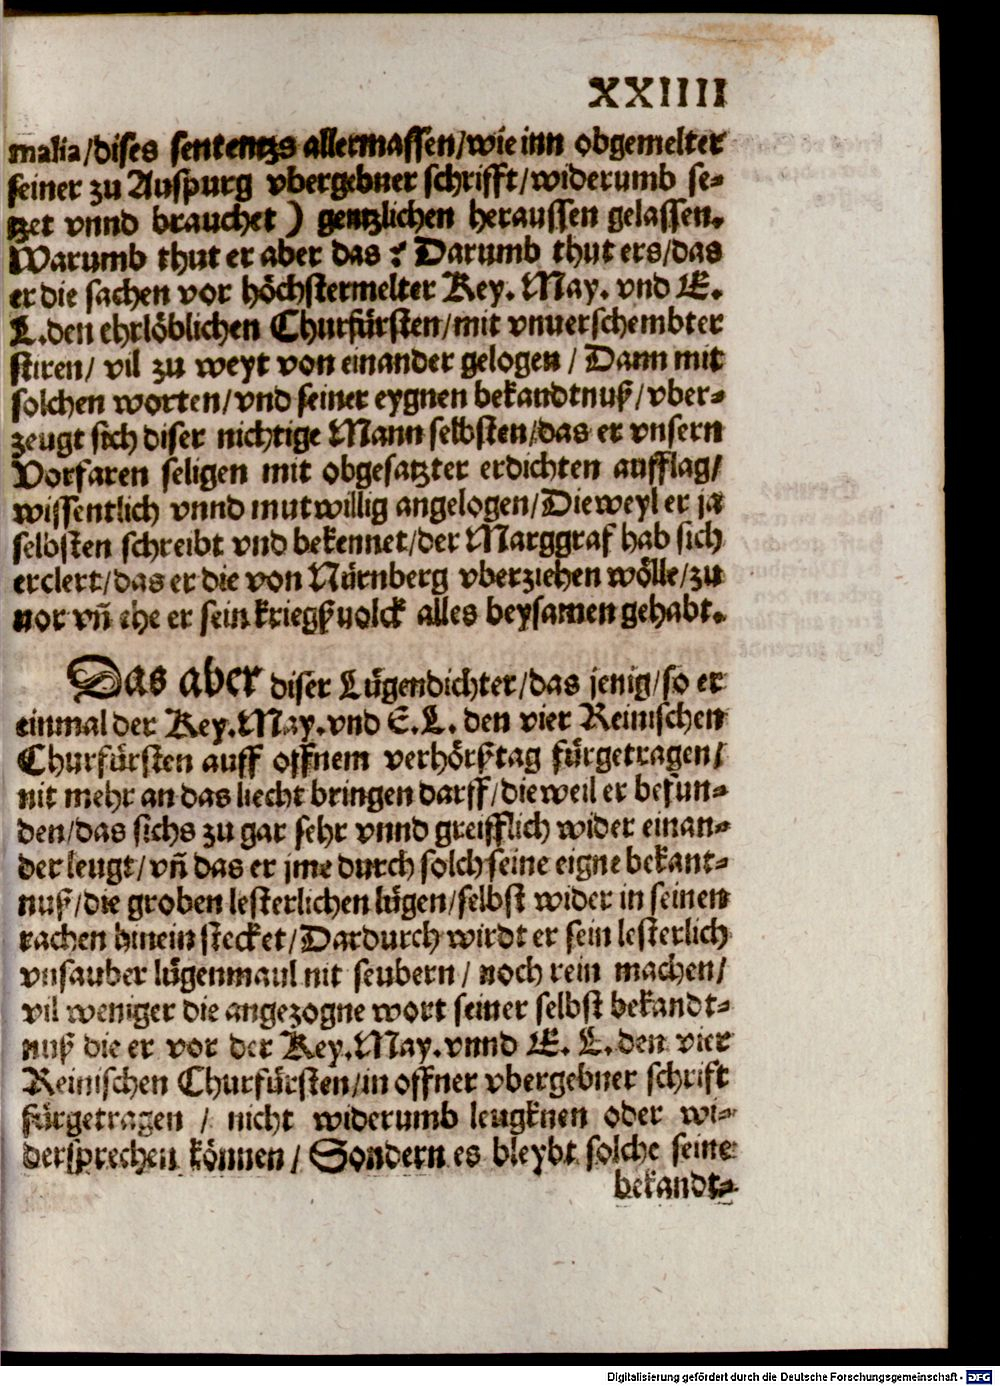 XXIIII
malia/dises sententzs allermassen/wie inn obgemelter
seiner zu Auspurg vbergebner schrifft/widerumb se-
tzet vnnd brauchet ) gentzlichen heraussen gelassen.
Warumb thut er aber das ? Darumb thut ers/das
er die sachen vor höchstermelter Key. May. vnd E.
L.den ehrlöblichen Churfürsten/mit vnuerschembter
stiren/ vil zu weyt von einander gelogen / Dann mit
solchen worten/vnd seiner eygnen bekandtnuß/vber-
zeugt sich diser nichtige Mann selbsten/das er vnsern
Vorfaren seligen mit obgesatzter erdichten aufflag/
wissentlich vnnd mutwillig angelogen/Die weyl er ja
selbsten schreibt vnd bekennet/der Marggraf hab sich
erclert/das er die von Nürnberg vberziehen wölle/zu
uor vñ ehe er sein kriegßuolck alles beysamen gehabt.
Das aber diser Lügendichter/das jenig/so er
einmal der Key.May.vnd E.L. den vier Reinischen
Churfürsten auff offnem verhörßtag fürgetragen/
nit mehr an das liecht bringen darff/die weil er befun-
den/das sichs zu gar sehr vnnd greifflich wider einan-
der leugt/vñ das er jme durch solch seine eigne bekant-
nuß/die groben lesterlichen lügen/selbst wider in seinen
rachen hinein stecket/Dardurch wirdt er sein lesterlich
vnsauber lügenmaul nit seubern/ noch rein machen/
vil weniger die angezogne wort seiner selbst bekandt-
nuß die er vor der Key.May.vnnd E. L.den vier
Reinischen Churfürsten/in offner vbergebner schrift
fürgetragen / nicht widerumb leugknen oder wi-
dersprechen können/ Sondern es bleybt solche seine
bekandt-
Digitalisierung gefördert durch die Deutsche Forschungsgemeinschaft - DFG